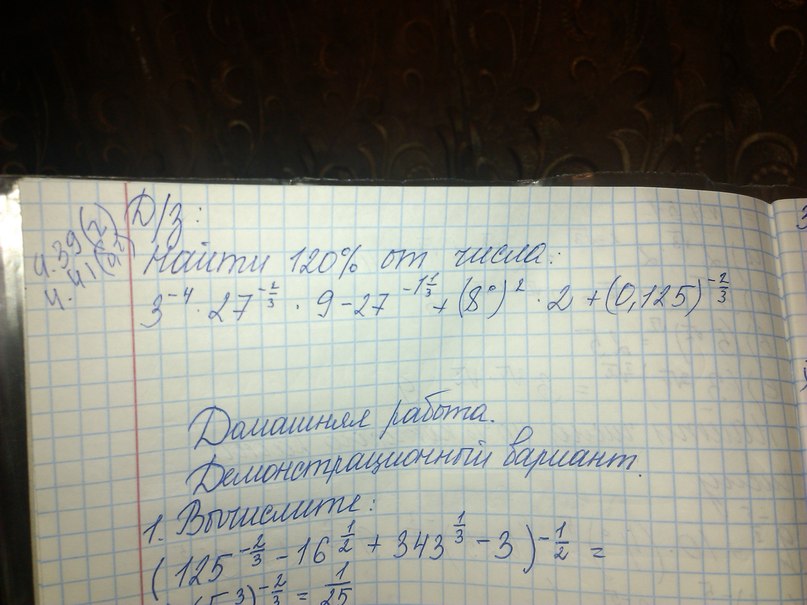 Д/з:
4.39(2)
4.41
Найти 120% от числа:
3⁻⁴ · 27^(-2/3) · 9 - 27^(-1 1/3) + (8⁰)² · 2 + (0,125)^(-2/3)
Домашняя работа.
Демонстрационный вариант.
1. Вычислите:
(125^(-2/3) - 16^(1/2) + 343^(1/3) - 3)^(-1/2) =
(5³)^(-2/3) = 1/25